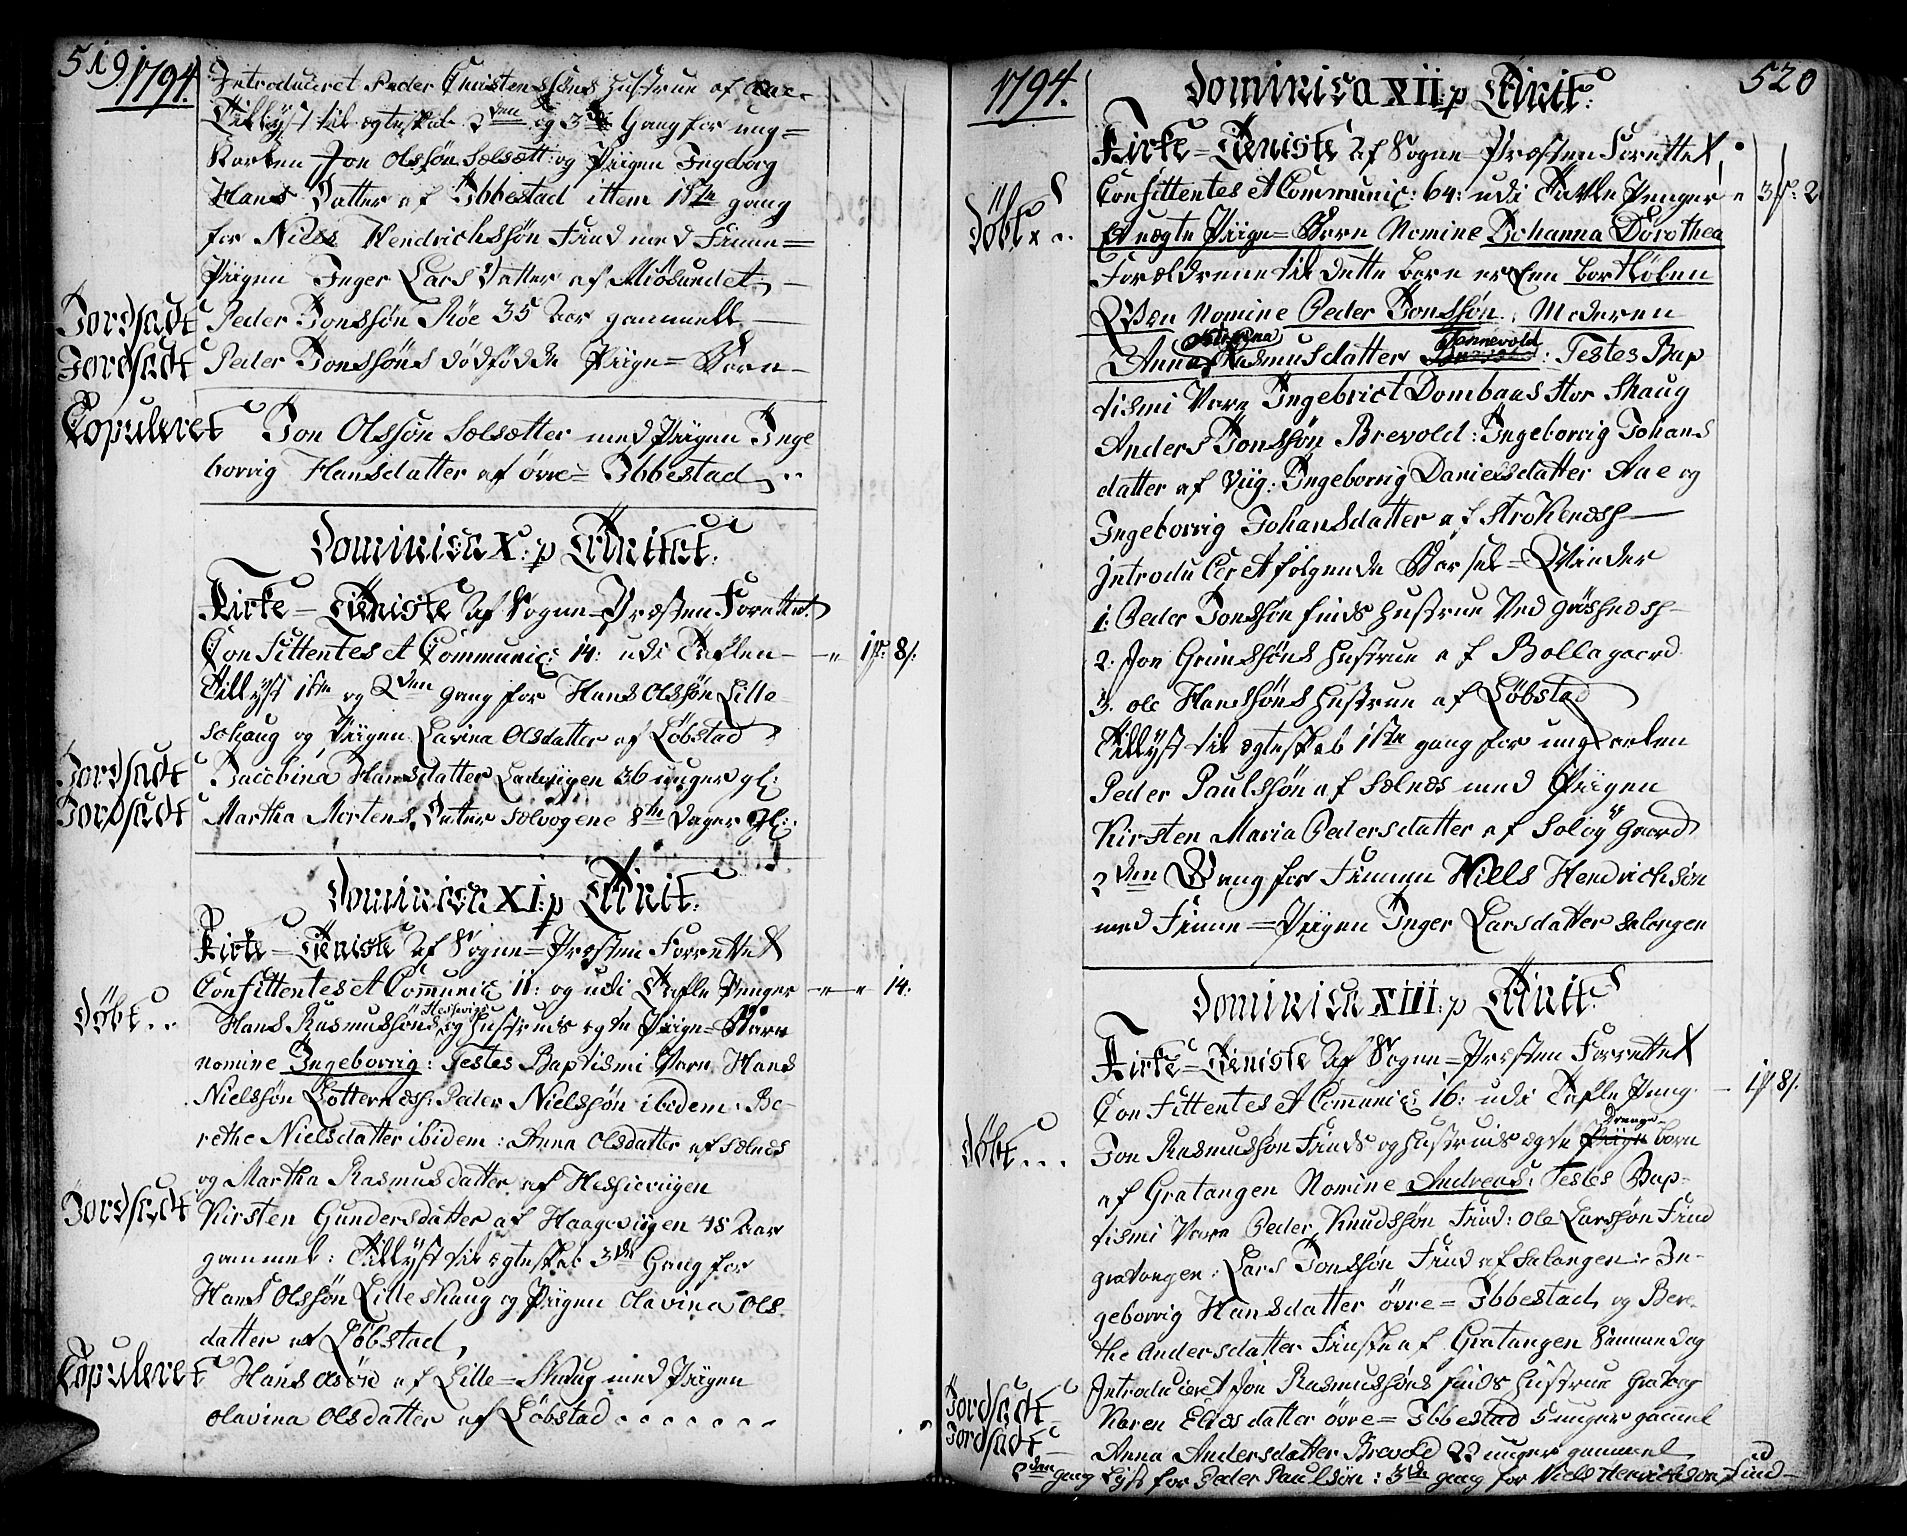 519
1794.
Introduceret Peder Christenssøns Hustrue af Aae.
Tillyst til Egteskab 2den og 3die Gang for ung=
karlen Jon Olssøn Sælsætt: og Piigen Ingeborg
Hans Datter af Ibbestad ittem 1ste gang
for Niels Hendrichssøn Find med Finne=
Piigen Inger Lars Datter af Miøsundet,
Jordsadt Peder Jonssøn Røe 35 Aar gammell
Jordsadt Peder Jonssøns dødfødde Piige=Barn
Copuleret Jon Olssøn Sælsætter med Piigen Inge
borrig Hansdatter af øvre=Ibbestad,
Dominica X: p Trinitat:
Kirke=Tieniste Af Sogne=Præsten Forrettet
Confittentes et Communic: 14: udi Taflen - - " 1 p: 8 s:
Tillyst 1ste og 2den gang for Hans Olssøn Lille
schaug og Piigen Lavina Olsdatter af Løbstad
Jordsadt Jacobina Hansdatter Ladviigen 36 uuger gl:
Jordsadt Martha Mortens Datter Sælvogene 8te Dager Gl:
Dominica XI: p Trinit:
Kirke=Tieniste af Sogne=Præsten Forrettet
Confittentes et Com̅unic: 11: og udi Tafle Penger - " - " 14:
Døbt.. Hans Rasmussøns Hessevig og Hustrues egte Piige=Barn
nomine Ingeborrig: Testes Baptismi Varn Hans
Nielssøn Lotternæs: Peder Nielssøn ibidem: Be-
rethe Nielsdatter ibidem: Anna Olsdatter af Sælnes
og Martha Rasmusdatter af Hessieviigen
Jordsadt Kirsten Gundersdatter af Haageviigen 48 Aar
gammel: Tillyst til egteskab 3die Gang for
Hans Olssøn Lilleskaug og Piigen Olavina Ols.
datter af Løbstad,
Copuleret Hans Olsøn af Lille=Skaug med Piigen
Olavina Olsdatter af Løbstad . . . . . . .
1794.
520
Dominica XII: p Trinit:
Kirke=Tieniste Af Sogne=Præsten Forrettet
Confittentes et Communic: 64: udi Tavle Penger " 3 p: 2
Døbt.. Et uægte Piige=Barn Nomine Johanna Dorothea
Forældrene til dette barn er Een bortløben
Qvæn Nomine Peder Jonssøn. Moderen
Anna Rasmusdatter Tannevold: Testes Bap
tismi Varn Ingebrict Dombaas Stor Skaug
Anders Jonssøn Brevold: Ingeborrig Johans
datter af Viig: Ingeborrig Danielsdatter Aae og
Ingeborrig Johansdatter af Strokenæs
Introduceret følgende Barsel=Qvinder
1. Peder Jonssøn Finds Hustrue Ved Grøsnæs
2. Jon Grimssøns Hustrue af Bollagaard
3. Ole Hanssøns Hustrue af Løbstad
Tillyst til Egteskab 1ste gang for ungkarlen
Peder Paulssøn af Sælnæs med Piigen
Kirsten Maria Pedersdatter af Soløy Gaard
2den Gang for Finnen Nills Hendrichsøn
med Finne=Piigen Inger Larsdatter Salangen
Dominica XIII: p Trinit
Kirke=Tieniste Af Sogne=Præsten Forrettet
Confittentes et Com̅unic: 16: udi Tafle Peng. - 1 p 8 s:
Drenge
Døbt... Jon Rasmussøn Finds og Hustrues egte Piige barn
af Gratangen Nomine Andreas: Testes Bap-
tismi Varn Peder Knudssøn Find: Ole Larssøn Find
gratangen: Lars Jonssøn Find af Salangen: In-
geborrig Hansdatter øvre=Ibbestad, og Bere-
the Andersdatter Finske af Gratangen Samme dag
Introduceret Jon Rasmussøns Finds Hustrue Gratang
Jordsadt Karen Eliesdatter øvre=Ibbestad 5 uuger gam̅el
Jordsadt Anna Andersdatter Brevold 22 uuger gammel
2den gang Lyst for Peder Paulsøn: 3die gang for Niels Henrichson Find